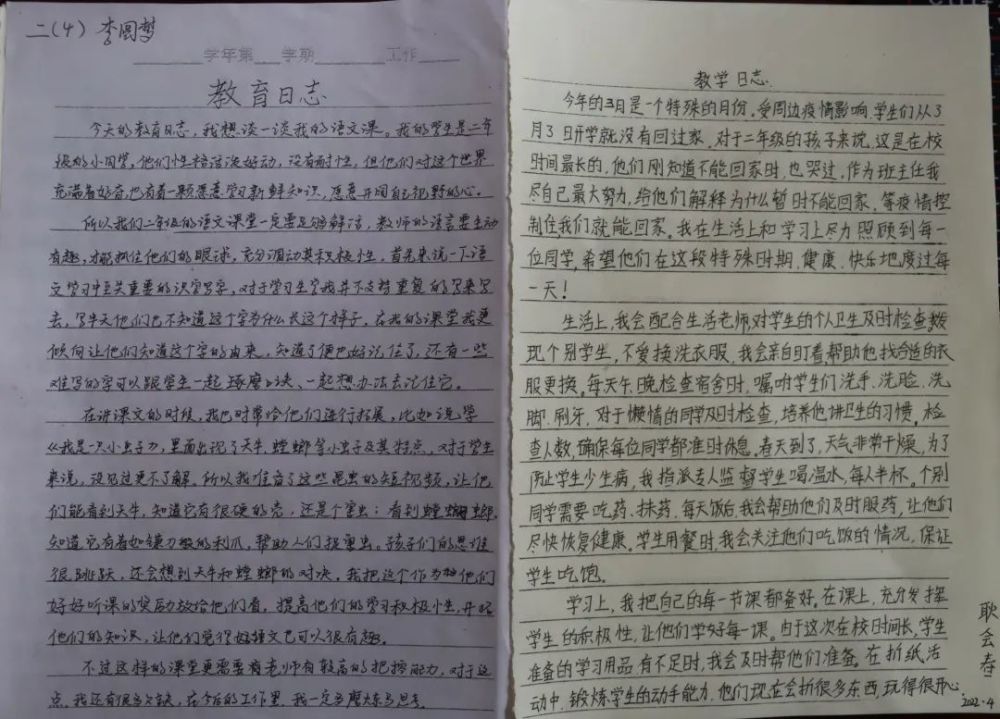 二(4) 李圆梦
学年第 学期 工作
教育日志
今天的教育日志，我想谈一谈我的语文课。我的学生是二年
级的小同学，他们性格活泼好动，没有耐性，但他们对这个世界
充满着好奇，也有着一颗愿意学习新鲜知识，愿意开阔自己视野的心。
所以我们二年级的语文课堂一定要足够鲜活，教师的语言要生动
有趣，才能抓住他们的眼球，充分调动其积极性，首先来说一下语
文学习中至关重要的识字写字，对于学习生字我并不支持重复的写来写
去，写半天他们也不知道这个字为什么长这个样子，在我的课堂我更
倾向让他们知道这个字的由来，知道了便也好记住了，还有一些
难写的字可以跟学生一起琢磨口诀、一起想办法去记住它。
在讲课文的时候，我也时常给他们进行拓展，比如说学
《我是一只小虫子》，里面出现了天牛、螳螂等小虫子及其特点，对于学生
来说，没见过更不了解，所以我准备了这些昆虫的短视频，让他
们能看到天牛，知道它有很硬的壳，还是个害虫；看到螳螂，
知道它有着如镰刀般的利爪，帮助人们捉害虫。孩子们的思维
很跳跃，还会想到天牛和螳螂的对决，我把这个作为他们
好好听课的奖励放给他们看，提高他们的学习积极性，开阔
他们的知识，让他们觉得好语文也可以很有趣。
不过这样的课堂更需要有老师有较高的把控能力，对于这
点，我还有很多欠缺，在今后的工作里，我一定多磨炼多思考
教学日志.
今年的3月是一个特殊的月份，受周边疫情影响，学生们从3
月3日开学就没有回过家，对于二年级的孩子来说，这是在校
时间最长的，他们刚知道不能回家时，也哭过，作为班主任我
尽自己最大努力，给他们解释为什么暂时不能回家、等疫情控
制住，我们就能回家。我在生活上和学习上尽力照顾到每一
位同学，希望他们在这段特殊时期，健康、快乐地度过每
一天！
生活上，我会配合生活老师，对学生的个人卫生及时检查，发
现个别学生，不爱换洗衣服，我会亲自盯着，帮助他找合适的衣
服更换。每天午、晚检查宿舍时，嘱咐学生们洗手、洗脸、洗
脚、刷牙，对于懒惰的同学及时检查，培养他讲卫生的习惯。检
查人数，确保每位同学都准时休息。春天到了，天气非常干燥，为了
防止学生少生病，我指派专人监督学生喝温水，每人半杯。个别
同学需要吃药、抹药，每天饭后我会帮助他们及时服药，让他们
尽快恢复健康。学生用餐时，我会关注他们吃饭的情况，保证
学生吃饱。
学习上，我把自己的每一节课都备好。在课上，充分发挥
学生的积极性，让他们学好每一课。由于这次在校时间长，学生
准备的学习用品有不足时，我会及时帮他们准备。在折纸活
动中，锻炼学生的动手能力，他们现在会折很多东西，玩得很开心.
耿会春
2022.4